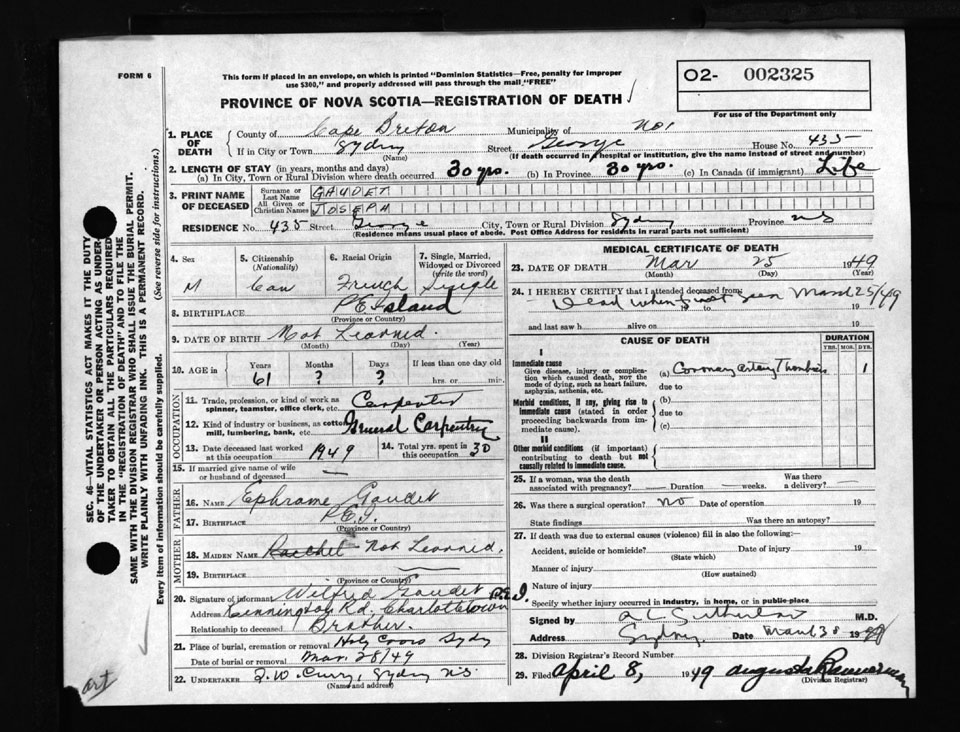 FORM 6
This form if placed in an envelope, on which is printed "Dominion Statistics—Free, penalty for improper
use $300," and properly addressed will pass through the mail "FREE"
PROVINCE OF NOVA SCOTIA—REGISTRATION OF DEATH
O2- 002325
For use of the Department only
SEC. 46—VITAL STATISTICS ACT MAKES IT THE DUTY
OF THE UNDERTAKER OR PERSON ACTING AS UNDER-
TAKER TO OBTAIN ALL THE PARTICULARS REQUIRED
IN THE "REGISTRATION OF DEATH" AND TO FILE THE
SAME WITH THE DIVISION REGISTRAR WHO SHALL ISSUE THE BURIAL PERMIT.
WRITE PLAINLY WITH UNFADING INK. THIS IS A PERMANENT RECORD.
Every item of information should be carefully supplied. (See reverse side for instructions.)
1. PLACE OF DEATH County of Cape Breton Municipality of No 1
If in City or Town Sydney (Name) Street George House No. 435
(If death occurred in hospital or institution, give the name instead of street and number)
2. LENGTH OF STAY (in years, months and days)
(a) In City, Town or Rural Division where death occurred 30 yrs. (b) In Province 30 yrs. (c) In Canada (if immigrant) Life
3. PRINT NAME OF DECEASED Surname or Last Name GAUDET
All Given or Christian Names JOSEPH
RESIDENCE No. 435 Street George City, Town or Rural Division Sydney Province NS
(Residence means usual place of abode. Post Office Address for residents in rural parts not sufficient)
4. Sex M
5. Citizenship (Nationality) Can
6. Racial Origin French
7. Single, Married, Widowed or Divorced (write the word) Single
8. BIRTHPLACE P E Island
(Province or Country)
9. DATE OF BIRTH Not Learned.
(Month) (Day) (Year)
10. AGE in Years 61 Months ? Days ? If less than one day old hrs. or min.
OCCUPATION
11. Trade, profession, or kind of work as spinner, teamster, office clerk, etc. Carpenter
12. Kind of industry or business, as cotton mill, lumbering, bank, etc. General Carpentry
13. Date deceased last worked at this occupation 1949
14. Total yrs. spent in this occupation 30
15. If married give name of wife or husband of deceased —
FATHER
16. Name Ephrame Gaudet
17. BIRTHPLACE P.E.I.
(Province or Country)
MOTHER
18. MAIDEN NAME Raechel Not Learned.
19. BIRTHPLACE —
(Province or Country)
20. Signature of informant Wilfred Gaudet
Address Kennington Rd. Charlottetown P.E.I.
Relationship to deceased Brother.
21. Place of burial, cremation or removal Holy Cross Sydney
Date of burial or removal Mar. 28/49
22. UNDERTAKER Curry, Sydney NS
(Name and address)
MEDICAL CERTIFICATE OF DEATH
23. DATE OF DEATH Mar 25 1949
(Month) (Day) (Year)
24. I HEREBY CERTIFY that I attended deceased from:
Dead when first seen March 25/49
19 to 19
and last saw h alive on 19
CAUSE OF DEATH
DURATION
YRS. MOS. DYS.
I
Immediate cause
Give disease, injury or complication which caused death, not the mode of dying, such as heart failure, asphyxia, asthenia, etc.
(a) Coronary artery Thrombosis 1
due to
Morbid conditions, if any, giving rise to immediate cause (stated in order proceeding backwards from immediate cause).
(b)
due to
(c)
II
Other morbid conditions (if important) contributing to death but not causally related to immediate cause.
25. If a woman, was the death associated with pregnancy? — Duration — weeks. Was there a delivery? —
26. Was there a surgical operation? No Date of operation 19
State findings Was there an autopsy?
27. If death was due to external causes (violence) fill in also the following:
Accident, suicide or homicide? Date of injury 19
(State which)
Manner of injury
(How sustained)
Nature of injury
Specify whether injury occurred in industry, in home, or in public place
Signed by Sutherland M.D.
Address Sydney. Date 1949
28. Division Registrar's Record Number
29. Filed April 8, 1949
(Division Registrar)
art